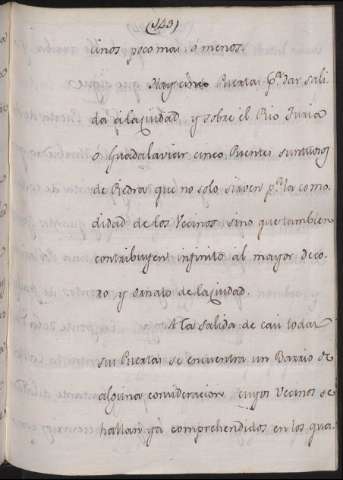 (543)
cinos poco mas, ó menos.
Hay cinco Puertas p.ª dar sali-
da á la Ciudad, y sobre el Rio Turia
ó Guadalaviar cinco Puentes sumtuosos
de Piedra que no solo sirven p.ª la como
didad de los Vecinos sino que tambien
contribuyen infinito al mayor deco-
ro y ornato de la Ciudad.
A la salida de casi todas
sus Puertas se encuentra un Barrio de
alguna consideracion cuyos Vecinos se
hallan ya comprehendidos en los qua-